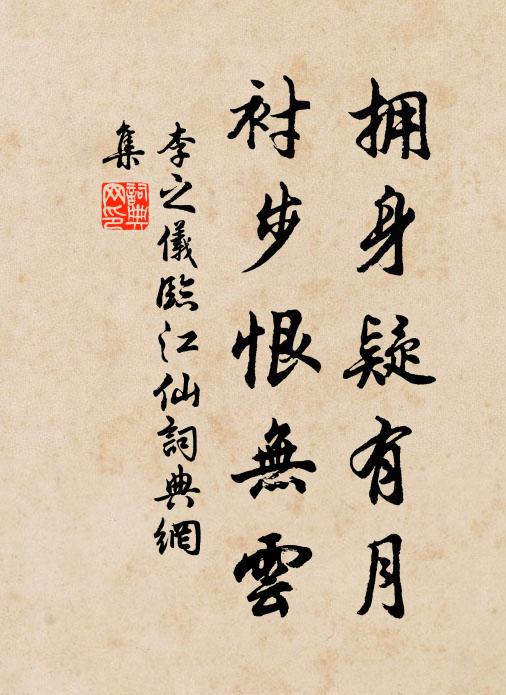 拥身疑有月
衬步恨無雲
李之儀臨江仙詞典網
集
詞典網印